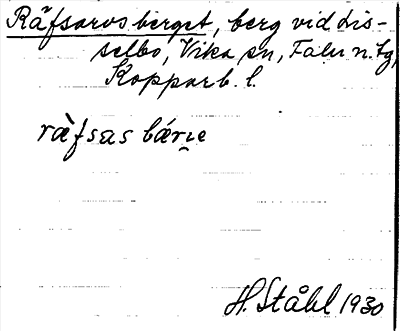 Räfsarvsberget, berg vid Dis-
selbo, Vika sn, Falu n. tg,
Kopparb. l.
ràfsas bárɩe
H. Ståhl 1930